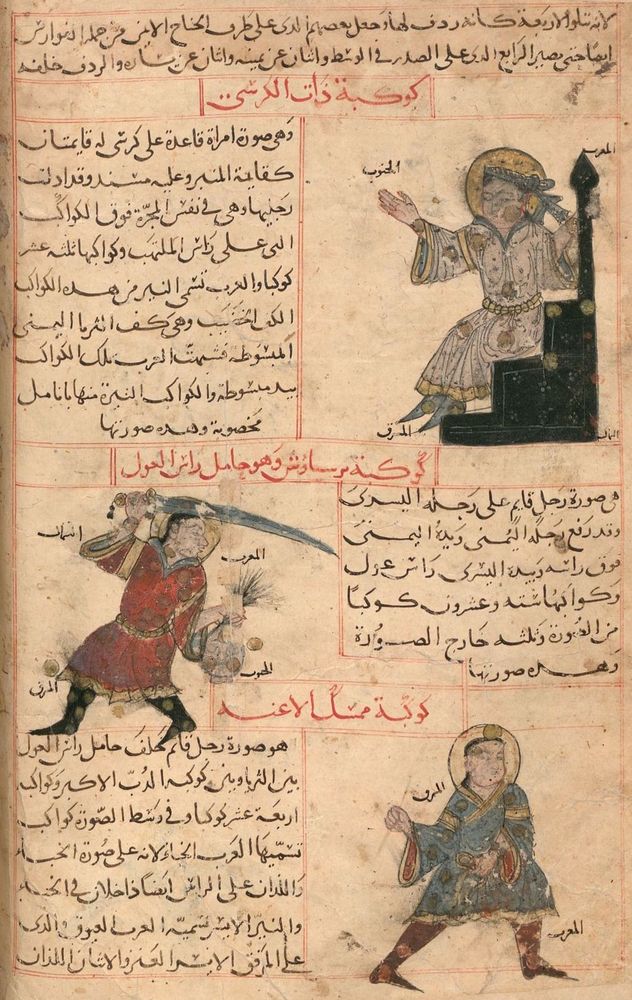 لانه تتلوا الاربعة كانه ردف لها وجعل بعضهم الذى على طرف الجناح الايمن من جملة الفوارس
ايضا حتى يصير الرابع الذى على الصدر فى الوسط واثنان عن يمينه واثنان عن يساره والردف خلفه
كوكبة ذات الكرسى
وهى صورة امراة قاعدة على كرسى له قايمتان
كقايمة المنبر وعليه مسند وقد ادلت
رجليها وهى فى نفس المجرة فوق الكواكب
التى على راس الملتهب وكواكبها ثلثه عشر
كوكبا والعرب تسمى النير من هذه الكواكب
الكف الخضيب وهى كف الثريا اليمنى
المبسوطة فشبهت العرب تلك الكواكب
بيد مبسوطة والكواكب النيرة منها بانامل
مخضوبة وهذه صورتها
المغرب
الجنوب
المشرق
الشمال
كوكبة برساوش وهو حامل راس الغول
هى صورة رجل قايم على رجله اليسرى
وقد رفع رجله اليمنى ويده اليمنى
فوق راسه وبيده اليسرى راس غول
وكواكبها ستة وعشرون كوكبا
من الصورة وثلثه خارج الصورة
وهذه صورتها
الشمال
المغرب
الجنوب
المشرق
كوكبة ممسك الاعنه
هو صورة رجل قايم خلف حامل راس الغول
بين الثريا وبين كوكبة الدب الاكبر وكواكبه
اربعة عشر كوكبا وفى وسط الصورة كواكب
تسميها العرب الخباء لانه على صورة الخباء
واللذان على الراس ايضا داخلان فى الخباء
والنير الايسر تسميه العرب العيوق والذى
على المرفق الايسر العنز والاثنان اللذان
المشرق
المغرب